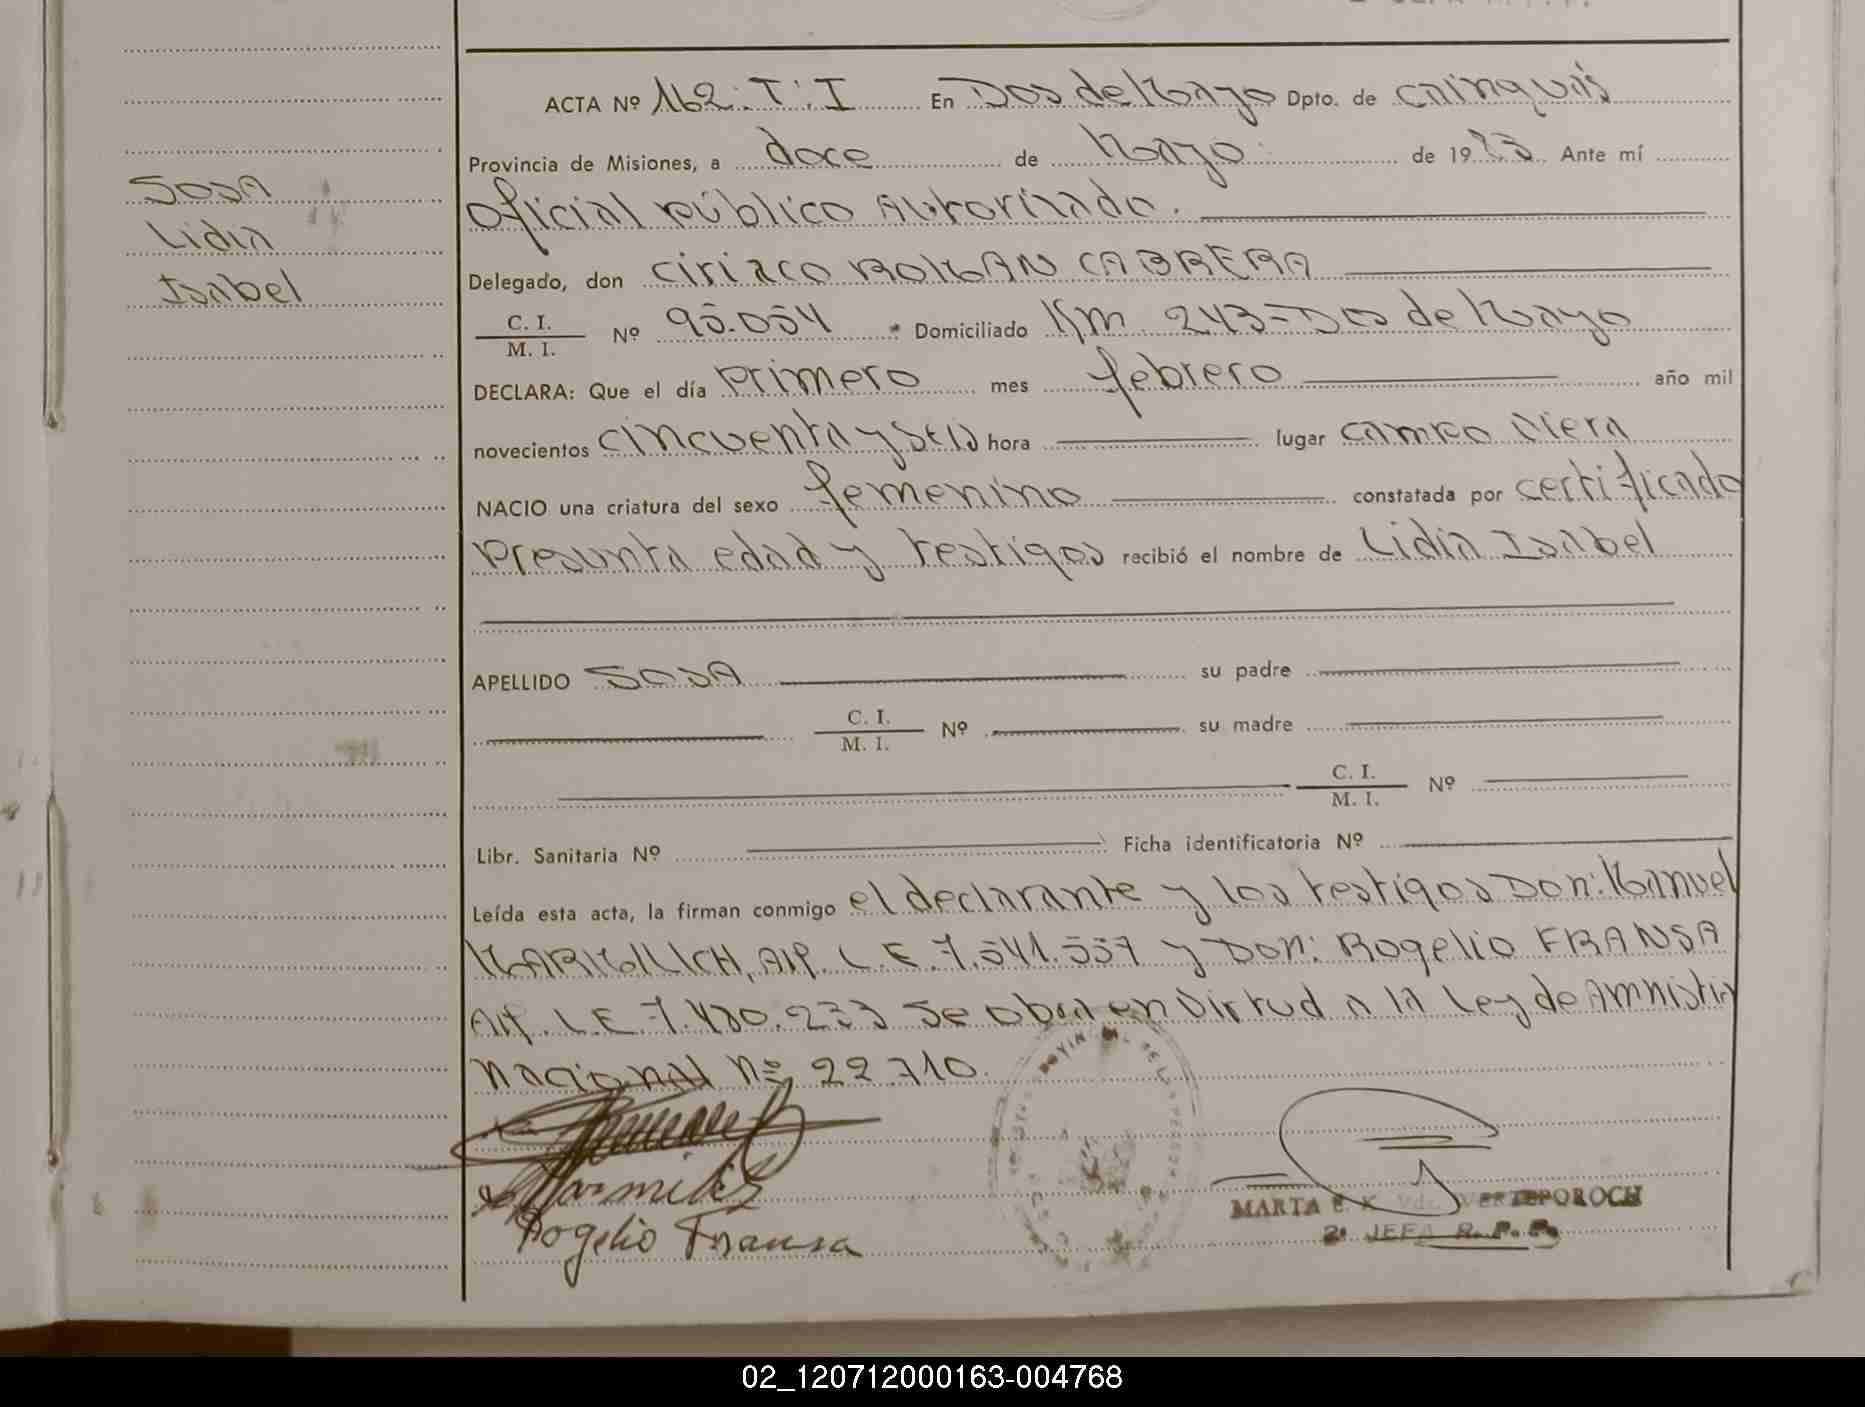 ACTA Nº 162. T. I En Dos de Mayo Dpto. de Cainguás
Provincia de Misiones, a doce de Mayo de 1983. Ante mí
Oficial público Autorizado.
SOSA
Lidia
Isabel
Delegado, don Ciriaco ROMAN CABRERA
C. I.
M. I. Nº 95.054 Domiciliado Km 243-Dos de Mayo
DECLARA: Que el día primero mes febrero año mil
novecientos cincuenta y seis hora lugar Campo Viera
NACIO una criatura del sexo femenino constatada por certificado
presunta edad y testigos recibió el nombre de Lidia Isabel
APELLIDO SOSA su padre
C. I.
M. I. Nº su madre
C. I.
M. I. Nº
Libr. Sanitaria Nº Ficha identificatoria Nº
Leída esta acta, la firman conmigo el declarante y los testigos Don: Manuel
L.E. 7.541.557 y Don: Rogelio FRANSA
L.E. 7.430.233 Se obra en Virtud a la Ley de Amnistia
Nacional Nº 22.710.
Rogelio Fransa
MARTA E. K. Vda. WERTEPOROCH
2º JEFA R. P. P.
02_120712000163-004768